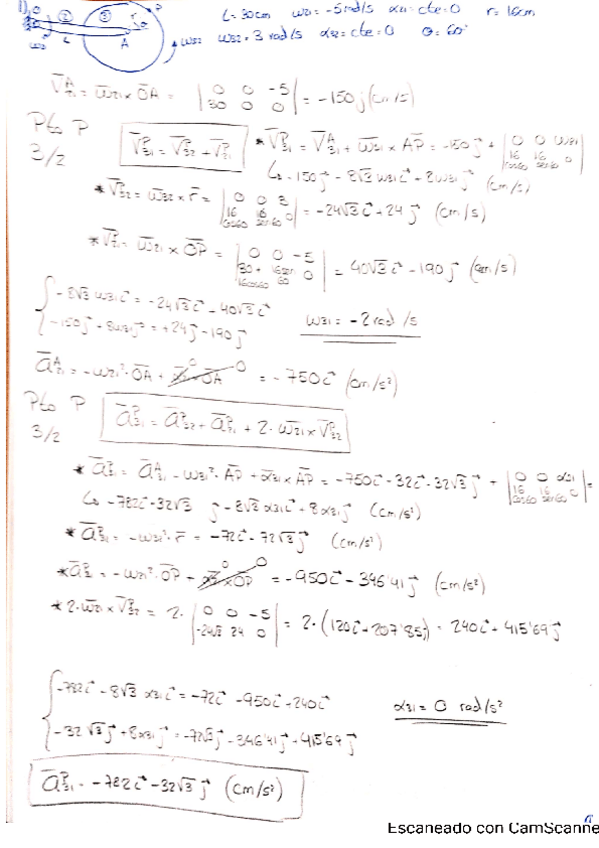 1) O 2 3 P
L A
ω21 ω32
L=30cm ω21=-5rad/s α21=cte=0 r=16cm
ω32=3 rad/s α32=cte=0 θ=60°
V̅ᴬ21 = ω̅21 x O̅A̅ = |0 0 -5; 30 0 0| = -150j (cm/s)
Pto P
3/2
V̅ᴾ31 = V̅ᴾ32 + V̅ᴾ21
* V̅ᴾ31 = V̅ᴬ31 + ω̅31 x A̅P̅ = -150j + |0 0 ω31; 16cos60 16sen60 0|
↳ -150j - 8√3 ω31 i + 8ω31 j (cm/s)
* V̅ᴾ32 = ω̅32 x r̅ = |0 0 3; 16cos60 16sen60 0| = -24√3 i + 24 j (cm/s)
* V̅ᴾ21 = ω̅21 x O̅P̅ = |0 0 -5; 30+16cos60 16sen60 0| = 40√3 i - 190 j (cm/s)
-8√3 ω31 i = -24√3 i + 40√3 i
-150j + 8ω31 j = +24j - 190j
ω31 = -2 rad/s
a̅ᴬ21 = -ω21² · O̅A̅ + = -750i (cm/s²)
Pto P
3/2
a̅ᴾ31 = a̅ᴾ32 + a̅ᴾ21 + 2·ω̅21 x V̅ᴾ32
* a̅ᴾ31 = a̅ᴬ31 - ω31² · A̅P̅ + α̅31 x A̅P̅ = -750i - 32i - 32√3 j + |0 0 α31; 16cos60 16sen60 0| =
↳ -782i - 32√3 j - 8√3 α31 i + 8α31 j (cm/s²)
* a̅ᴾ32 = -ω32² · r̅ = -72i - 72√3 j (cm/s²)
* a̅ᴾ21 = -ω21² · O̅P̅ + = -950i - 346'41j (cm/s²)
* 2·ω̅21 x V̅ᴾ32 = 2·|0 0 -5; -24√3 24 0| = 2·(120i + 207'85j) = 240i + 415'69j
-782i - 8√3 α31 i = -72i - 950i + 240i
-32√3 j + 8α31 j = -72√3 j - 346'41j + 415'69j
α31 = 0 rad/s²
a̅ᴾ31 = -782i - 32√3 j (cm/s²)
Escaneado con CamScanne